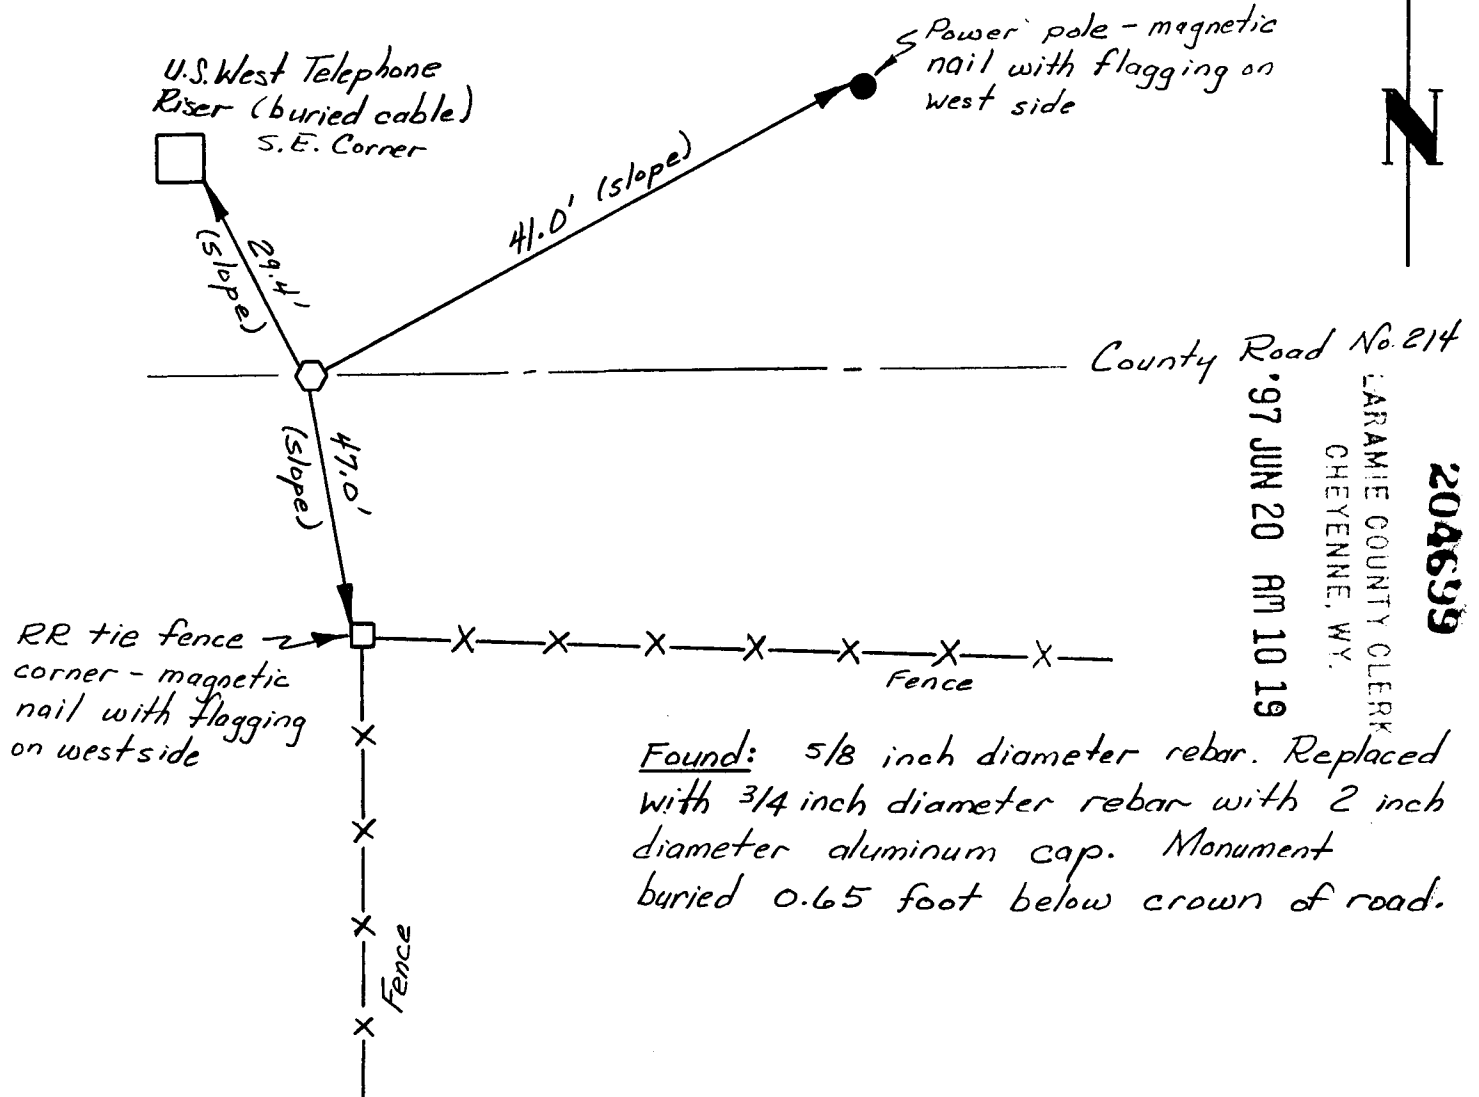 U.S. West Telephone
Riser (buried cable)
S.E. Corner
Power pole - magnetic
nail with flagging on
west side
N
41.0' (slope)
29.4'
(slope)
County Road No. 214
47.0'
(slope)
'97 JUN 20 AM 10 19
LARAMIE COUNTY CLERK
CHEYENNE, WY.
204699
RR tie fence
corner - magnetic
nail with flagging
on west side
X X X X X X X
Fence
X
X
X
X
Fence
Found: 5/8 inch diameter rebar. Replaced
with 3/4 inch diameter rebar with 2 inch
diameter aluminum cap. Monument
buried 0.65 foot below crown of road.